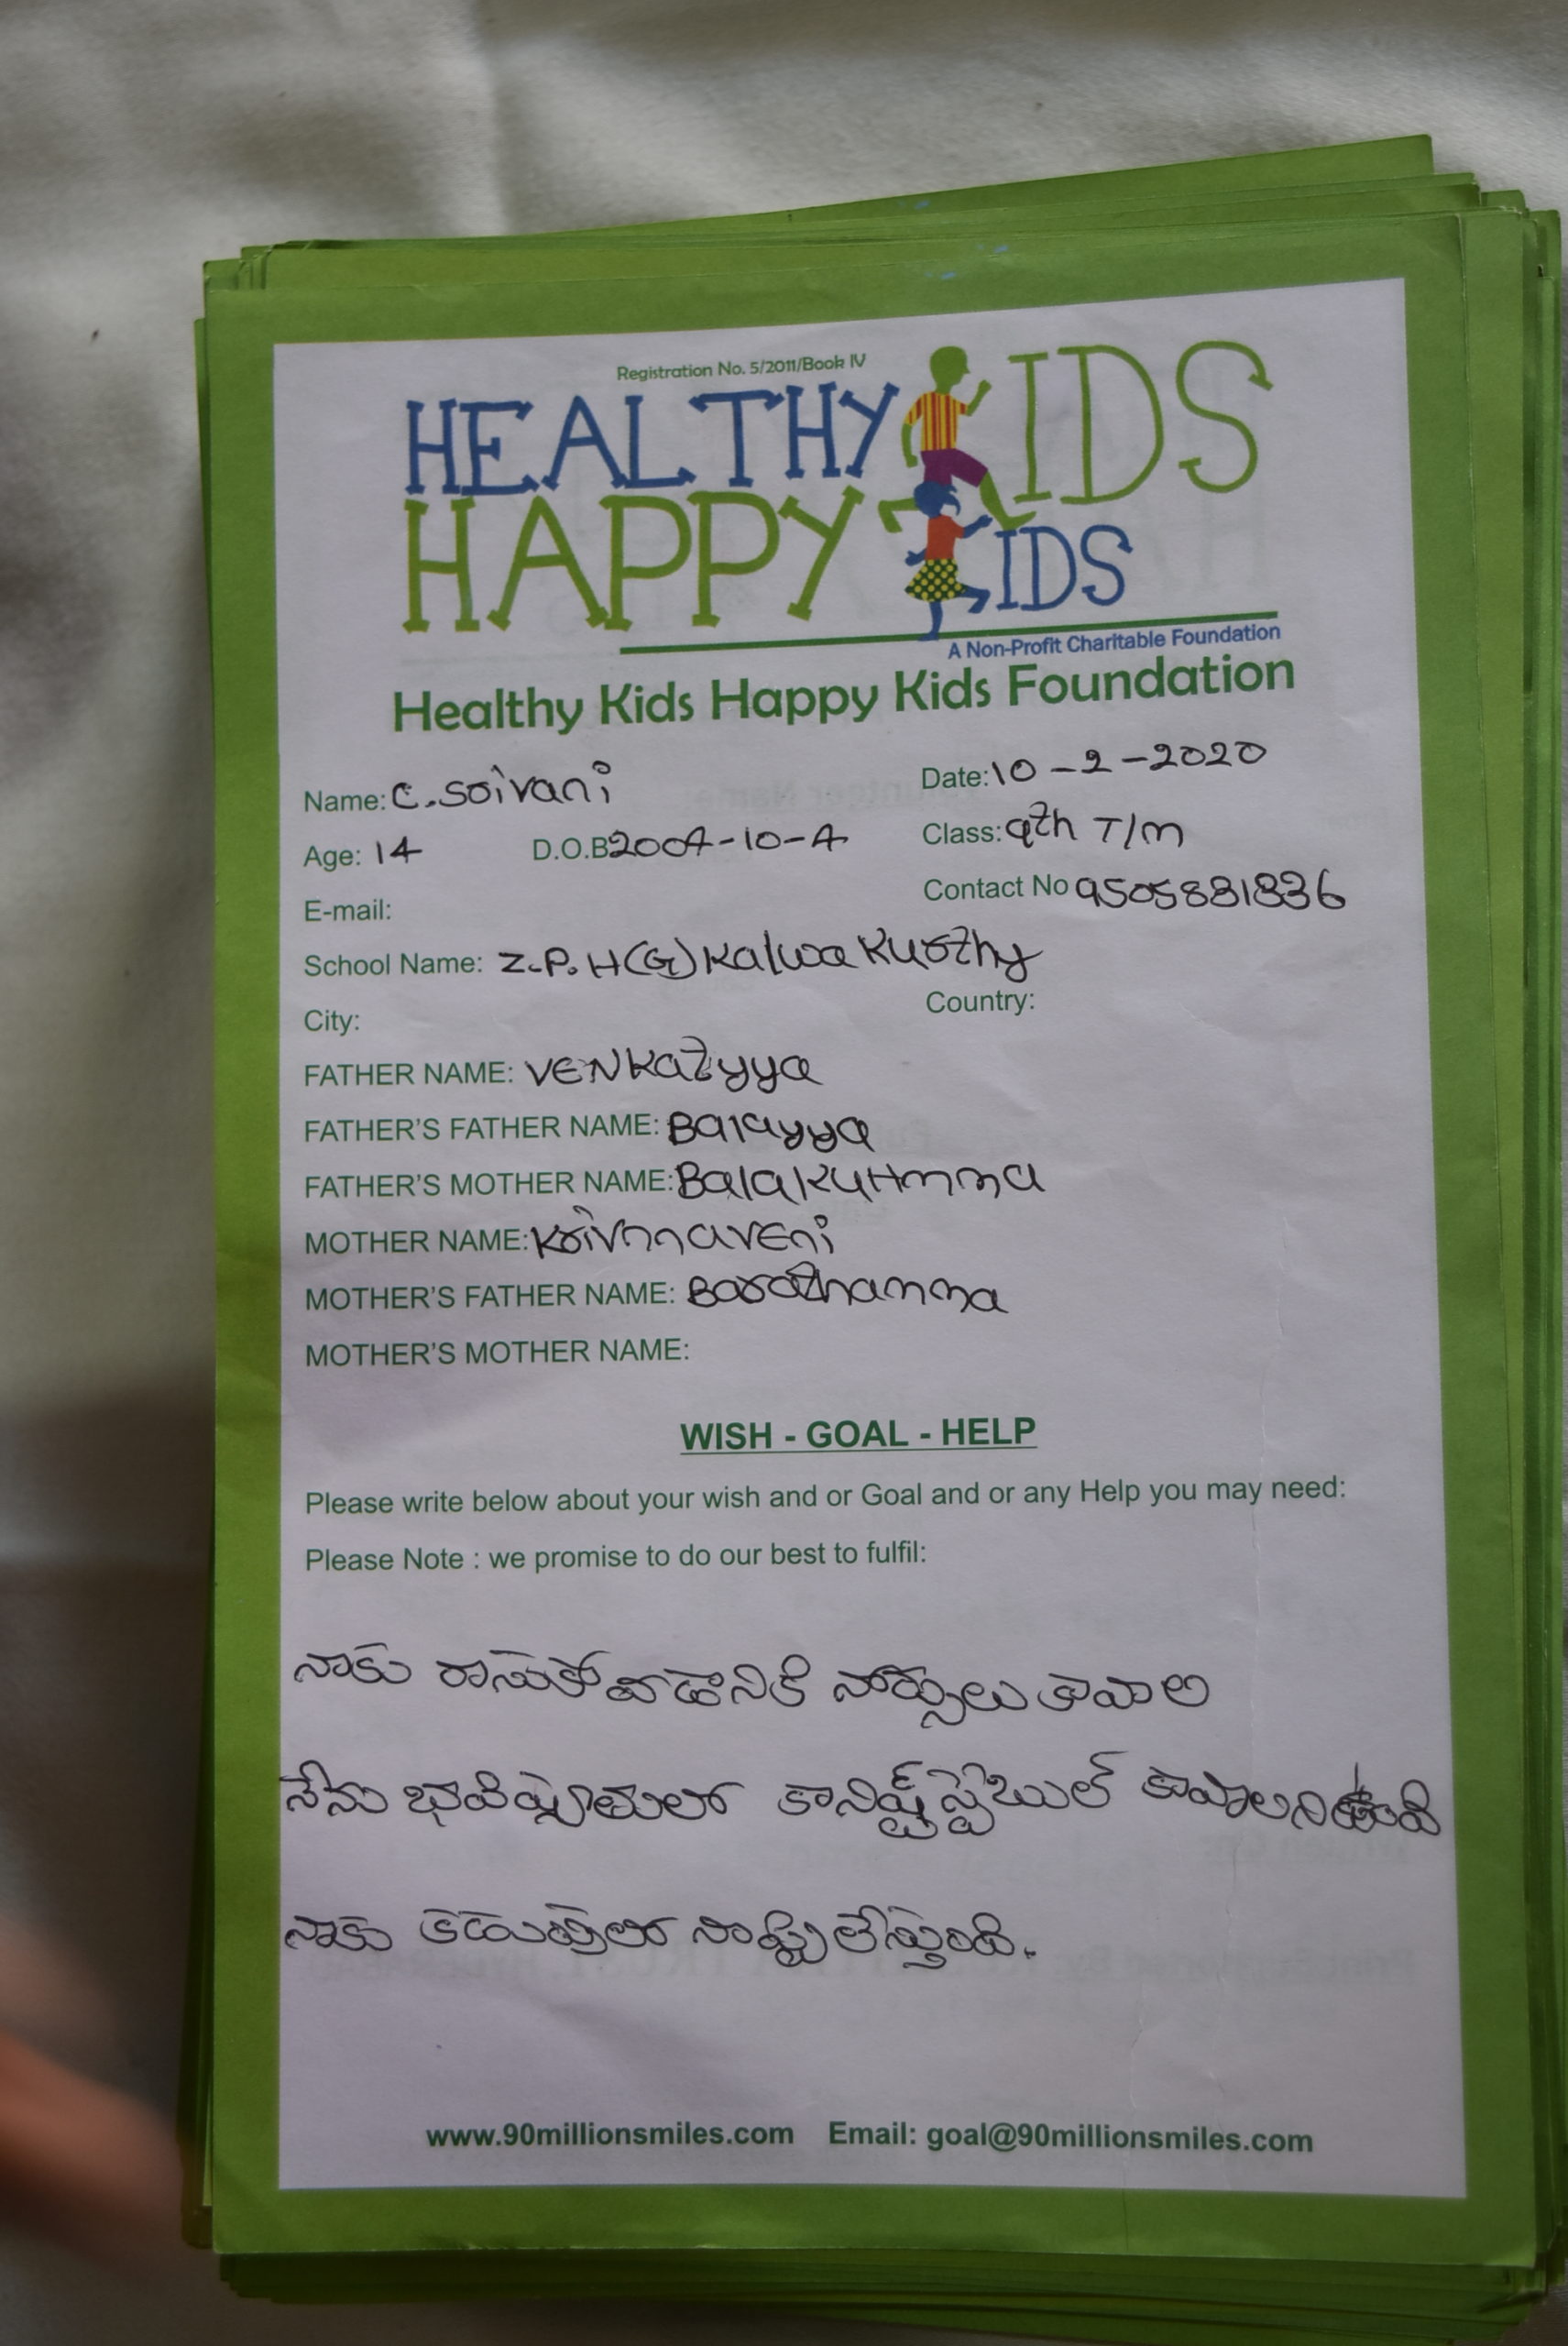 Registration No. 5/2011/Book IV
HEALTHY KIDS
HAPPY KIDS
A Non-Profit Charitable Foundation
Healthy Kids Happy Kids Foundation
Name: C. Sravani Date: 10-2-2020
Age: 14 D.O.B 2004-10-4 Class: 9th T/m
E-mail: Contact No 9505881836
School Name: Z.P.H(G) Kalwa Kurthy
City: Country:
FATHER NAME: VENKatyya
FATHER'S FATHER NAME: Balayya
FATHER'S MOTHER NAME:
MOTHER NAME:
MOTHER'S FATHER NAME: Barathamma
MOTHER'S MOTHER NAME:
WISH - GOAL - HELP
Please write below about your wish and or Goal and or any Help you may need:
Please Note : we promise to do our best to fulfil:
నాకు రాసుకోవడానికి నోట్సులు కావాలి
నేను భవిష్యతులో కావాలని ఉంది
నాకు కడుపులో నొప్పి లేస్తుంది.
www.90millionsmiles.com Email: goal@90millionsmiles.com